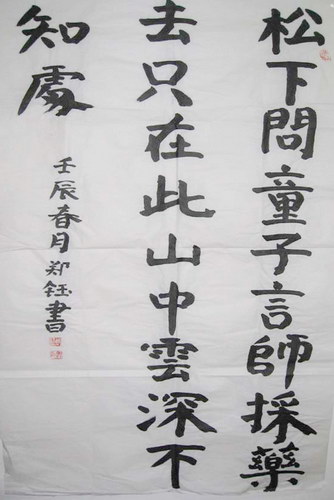 松下問童子言師採藥
去只在此山中雲深不
知處
壬辰春月郑鈺書